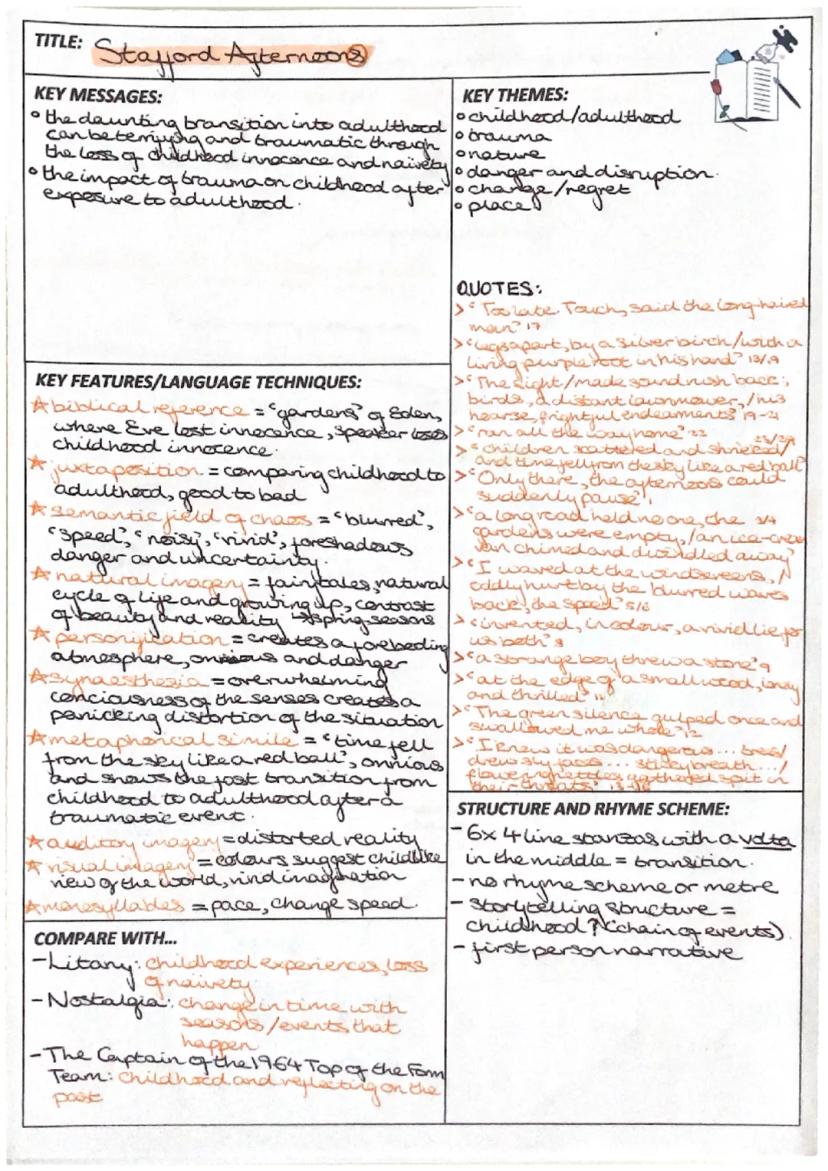 TITLE: Stafford Afternoons
KEY MESSAGES:
° the daunting transition into adulthood
can be terrifying and traumatic through
the loss of childhood innocence and naivety
° the impact of trauma on childhood after
exposure to adulthood.
KEY THEMES:
° childhood/adulthood
° trauma
° nature
° danger and disruption.
° change/regret
° place
QUOTES:
> "Too late. Touch, said the long-haired
man" 17
> "legs apart, by a silver birch/with a
living purple root in his hand" 18/19
> "The sight/made sound rush back;
birds, a distant lawnmower,/his
hoarse, frightful endearments" 19-21
> "ran all the way home" 22
> "children scattered and shrieked/ 23/24
and time fell from the sky like a red ball"
> "Only there, the afternoons could
suddenly pause" 1
> "a long road held no one, the 3/4
gardens were empty,/an ice-cream
van chimed and dwindled away"
> "I waved at the windscreens,/
oddly hurt by the blurred waves
back, the speed" 5/6
> "invented, in colour, a vivid lie for
us both" 8
> "a strange boy threw a stone" 9
> "at the edge of a small wood, lonely
and thrilled" 11
> "The green silence gulped once and
swallowed me whole" 12
> "I knew it was dangerous... trees/
drew sly faces... sticky breath.../
flowering nettles gathered spit in
their throats"
KEY FEATURES/LANGUAGE TECHNIQUES:
☆ biblical reference = "gardens" of Eden,
where Eve lost innocence, speaker loses
childhood innocence
☆ juxtaposition = comparing childhood to
adulthood, good to bad
☆ semantic field of chaos = "blurred",
"speed", "noisy", "vivid", foreshadows
danger and uncertainty.
☆ natural imagery = fairytales, natural
cycle of life and growing up, contrast
of beauty and reality → spring-seasons
☆ personification = creates a foreboding
atmosphere, and danger
☆ synaesthesia = overwhelming
conciousness of the senses creates a
panicking distortion of the situation
☆ metaphorical simile = "time fell
from the sky like a red ball", omnious
and shows the fast transition from
childhood to adulthood after a
traumatic event.
☆ auditory imagery = distorted reality
☆ visual imagery = colours suggest childlike
view of the world, vivid imagination
☆ monosyllables = pace, change speed.
STRUCTURE AND RHYME SCHEME:
- 6x 4 line stanzas with a volta
in the middle = transition.
- no rhyme scheme or metre
- storytelling structure =
childhood? (chain of events)
- first person narrative
COMPARE WITH...
- Litany: childhood experiences, loss
of naivety
- Nostalgia: change in time with
seasons/events that
happen
- The Captain of the 1964 Top of the Form
Team: childhood and reflecting on the
past